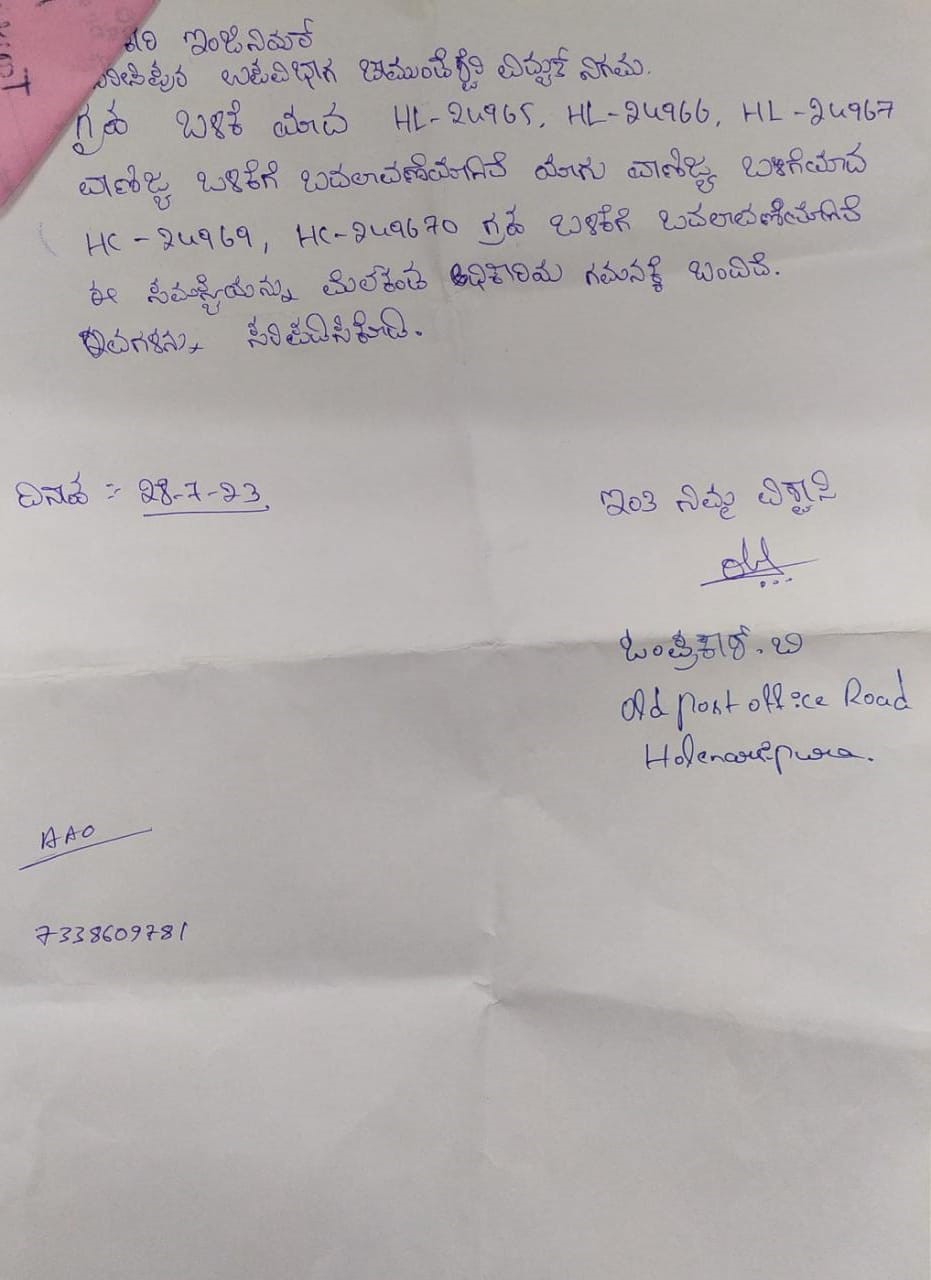 ಕಾರಿ ಇಂಜಿನಿಯರ್
ನರಸಿಪುರ ಉಪವಿಭಾಗ ಚಾಮುಂಡೆಶ್ವರಿ ವಿದ್ಯುತ್ ನಿಗಮ.
ಗ್ರಹ ಬಳಕೆ ಯಾದ HL-24965, HL-24966, HL-24967
ವಾಣಿಜ್ಯ ಬಳಕೆಗೆ ಬದಲಾವಣೆಯಾಗಿವೆ ಯಾಗು ವಾಣಿಜ್ಯ ಬಳಗೆಯಾದ
HC-24969, HC-249670 ಗ್ರಹ ಬಳಕೆಗೆ ಬದಲಾವಣೆಯಾಗಿವೆ
ಈ ಸಮಸ್ಯೆಯನ್ನು ಮೆಲೆಕಂಡ ಅಧಿಕಾರಿಯ ಗಮನಕ್ಕೆ ಬಂದಿದೆ.
ಇವಗಳನು ಸರಿಪಡಿಸಿಕೊಡಿ.
ದಿನಾಹ :- 28-7-23
ಇಂತಿ ನಿಮ್ಮ ವಿಶ್ವಾಸಿ
ಓಂಪ್ರಕಾಶ್. ಬಿ
old post office Road
Holenarsipura.
AAO
7338609781